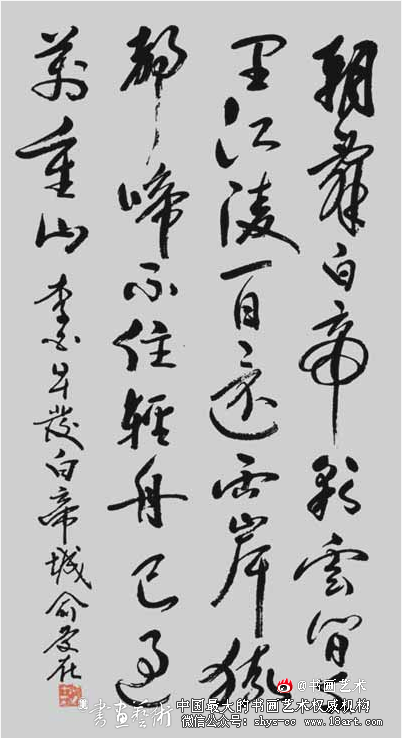 朝辭白帝彩雲間千
里江陵一日還兩岸猿
聲啼不住輕舟已過
萬重山 李白早發白帝城
@书画艺术
書畫藝術
中国最大的书画艺术权威机构
微信公众号: shys-cc www.18art.com